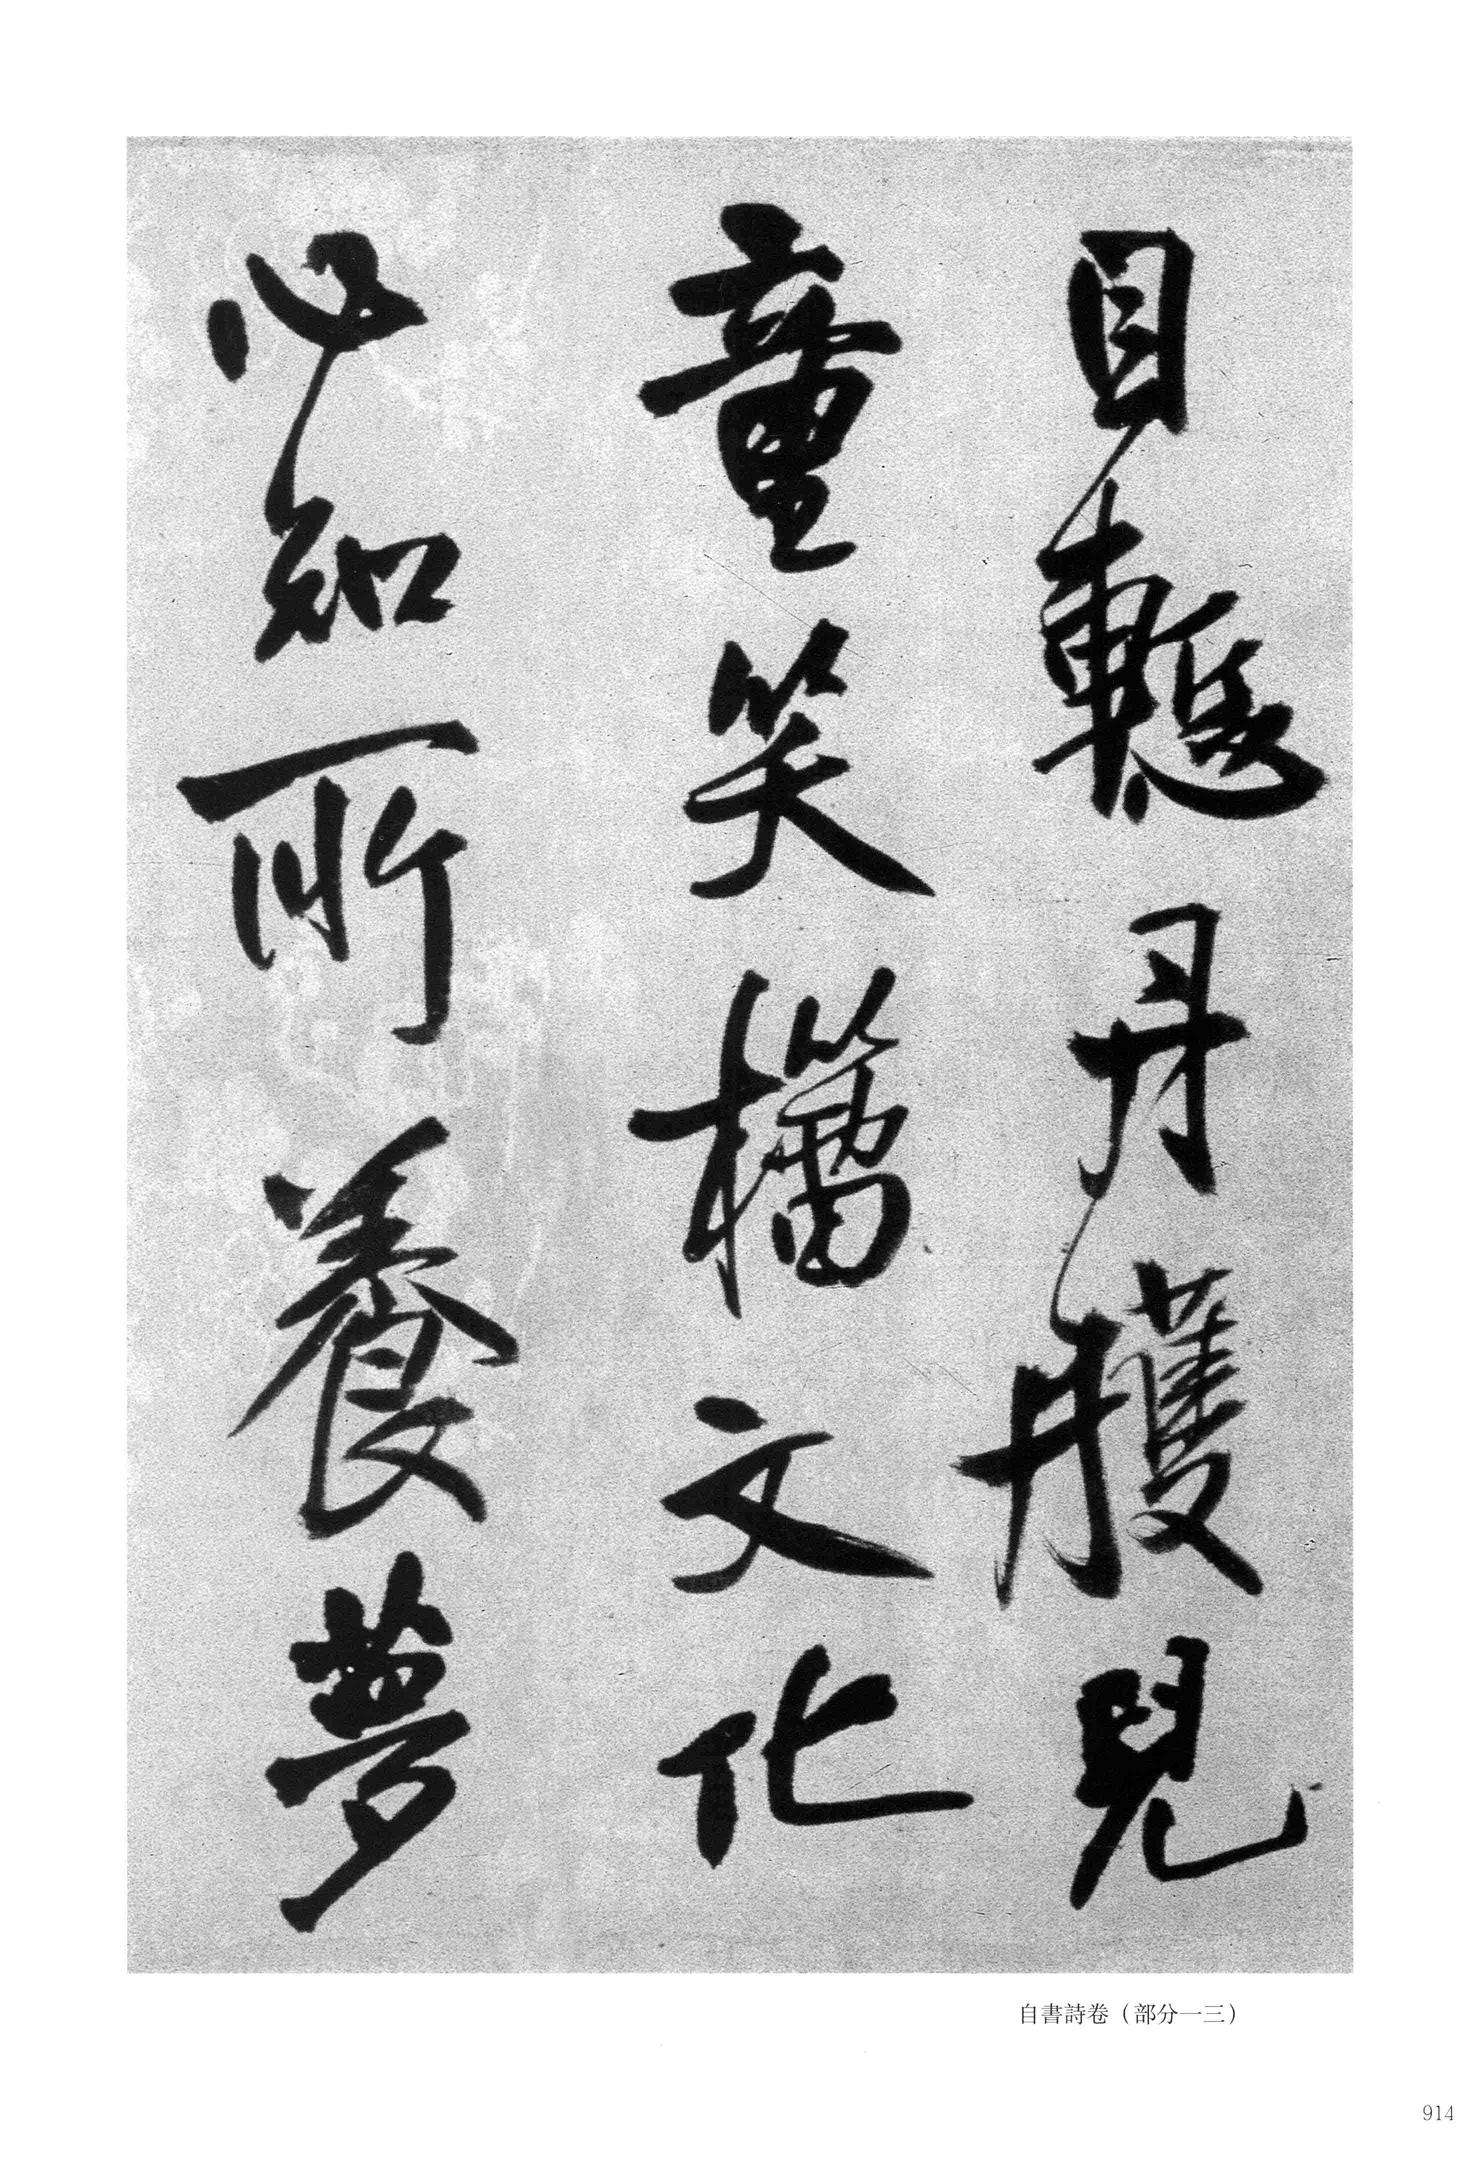 目慙丹臒兒
童笑籀文化
心知所養夢
自書詩卷（部分一三）
914